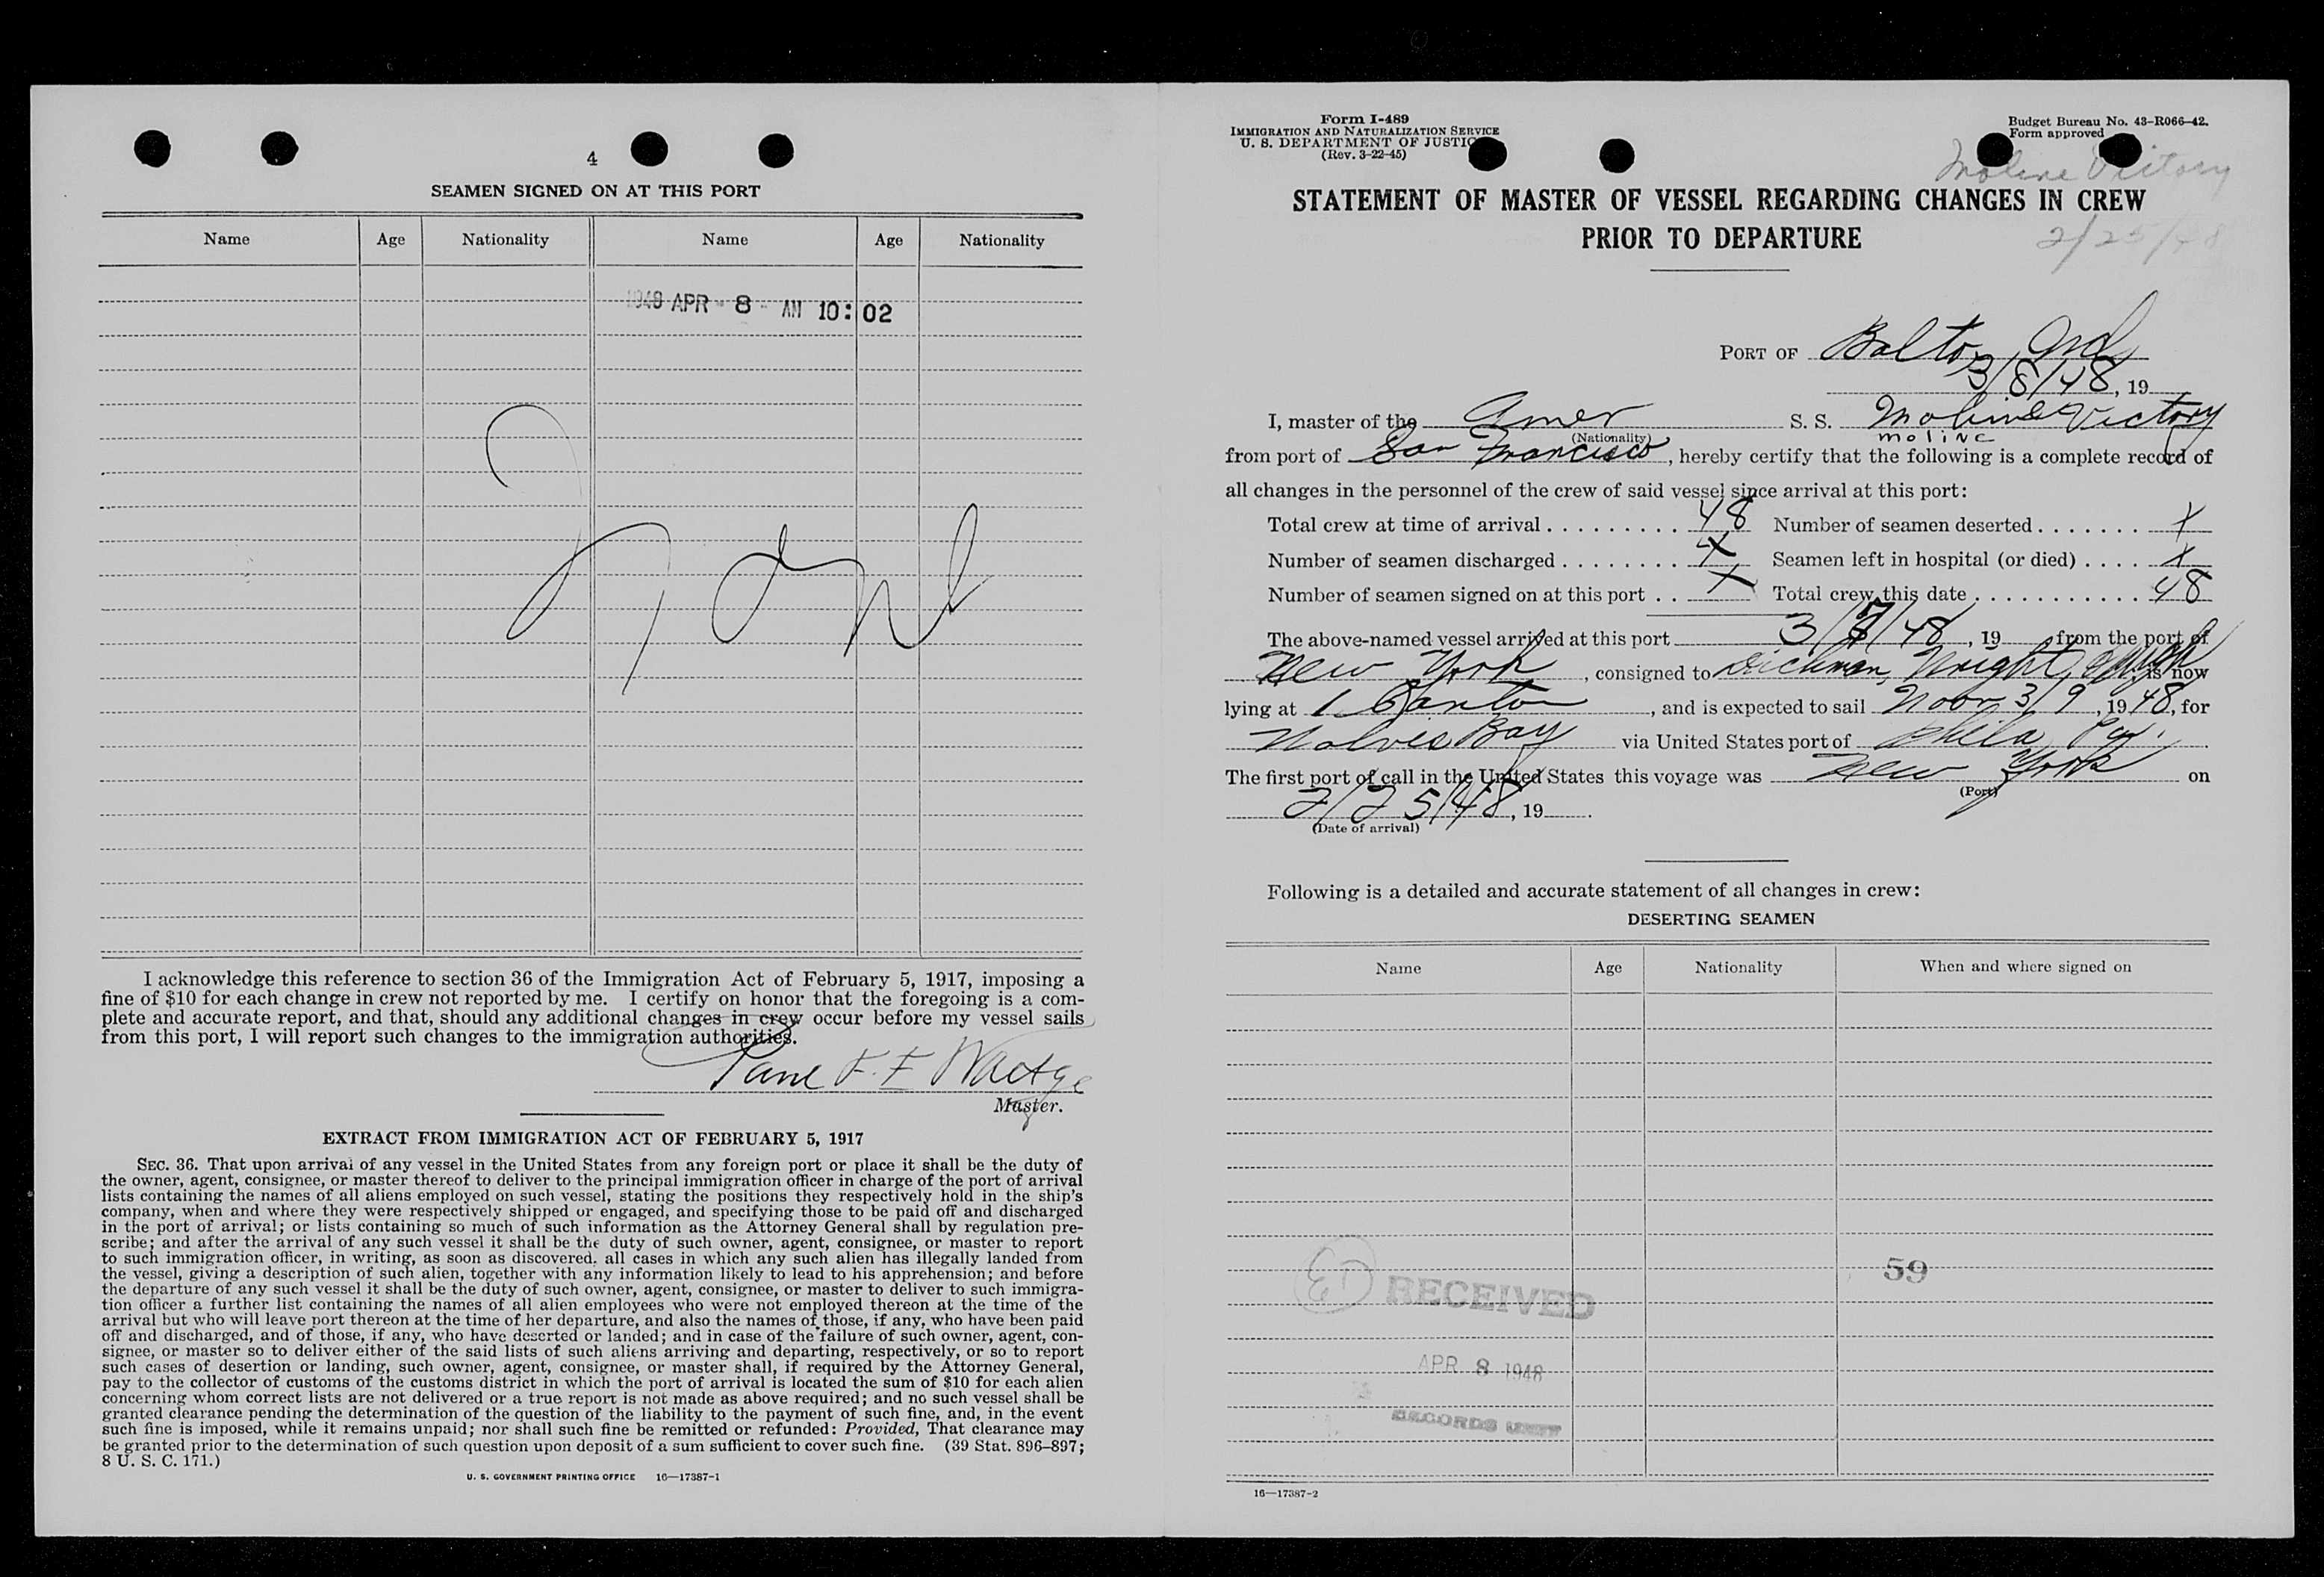 4
SEAMEN SIGNED ON AT THIS PORT
Name Age Nationality Name Age Nationality
1948 APR - 8 - AM 10:02
None
I acknowledge this reference to section 36 of the Immigration Act of February 5, 1917, imposing a
fine of $10 for each change in crew not reported by me. I certify on honor that the foregoing is a com-
plete and accurate report, and that, should any additional changes in crew occur before my vessel sails
from this port, I will report such changes to the immigration authorities.
F. E
Master.
EXTRACT FROM IMMIGRATION ACT OF FEBRUARY 5, 1917
SEC. 36. That upon arrival of any vessel in the United States from any foreign port or place it shall be the duty of
the owner, agent, consignee, or master thereof to deliver to the principal immigration officer in charge of the port of arrival
lists containing the names of all aliens employed on such vessel, stating the positions they respectively hold in the ship's
company, when and where they were respectively shipped or engaged, and specifying those to be paid off and discharged
in the port of arrival; or lists containing so much of such information as the Attorney General shall by regulation pre-
scribe; and after the arrival of any such vessel it shall be the duty of such owner, agent, consignee, or master to report
to such immigration officer, in writing, as soon as discovered, all cases in which any such alien has illegally landed from
the vessel, giving a description of such alien, together with any information likely to lead to his apprehension; and before
the departure of any such vessel it shall be the duty of such owner, agent, consignee, or master to deliver to such immigra-
tion officer a further list containing the names of all alien employees who were not employed thereon at the time of the
arrival but who will leave port thereon at the time of her departure, and also the names of those, if any, who have been paid
off and discharged, and of those, if any, who have deserted or landed; and in case of the failure of such owner, agent, con-
signee, or master so to deliver either of the said lists of such aliens arriving and departing, respectively, or so to report
such cases of desertion or landing, such owner, agent, consignee, or master shall, if required by the Attorney General,
pay to the collector of customs of the customs district in which the port of arrival is located the sum of $10 for each alien
concerning whom correct lists are not delivered or a true report is not made as above required; and no such vessel shall be
granted clearance pending the determination of the question of the liability to the payment of such fine, and, in the event
such fine is imposed, while it remains unpaid; nor shall such fine be remitted or refunded: Provided, That clearance may
be granted prior to the determination of such question upon deposit of a sum sufficient to cover such fine. (39 Stat. 896–897;
8 U. S. C. 171.)
U. S. GOVERNMENT PRINTING OFFICE 16—17387-1
Form I-489
IMMIGRATION AND NATURALIZATION SERVICE
U. S. DEPARTMENT OF JUSTIC
(Rev. 3-22-45)
Budget Bureau No. 43-R066-42.
Form approved
Moline Victory
2/25/48
STATEMENT OF MASTER OF VESSEL REGARDING CHANGES IN CREW
PRIOR TO DEPARTURE
PORT OF Balto, Md
3/8/48, 19
I, master of the Amer S. S. Moline Victory
(Nationality) moline
from port of San Francisco, hereby certify that the following is a complete record of
all changes in the personnel of the crew of said vessel since arrival at this port:
Total crew at time of arrival 48 Number of seamen deserted x
Number of seamen discharged x Seamen left in hospital (or died) x
Number of seamen signed on at this port x Total crew this date 48
The above-named vessel arrived at this port 3/7/48, 19 from the port of
New York, consigned to Dichman, Wright, is now
lying at 1 Canton, and is expected to sail Noon 3/9, 1948, for
Bay via United States port of Phila Pa.
The first port of call in the United States this voyage was New York on
(Port)
2/25/48, 19
(Date of arrival)
Following is a detailed and accurate statement of all changes in crew:
DESERTING SEAMEN
Name Age Nationality When and where signed on
59
ED RECEIVED
APR 8 1948
RECORDS UNIT
16—17387-2